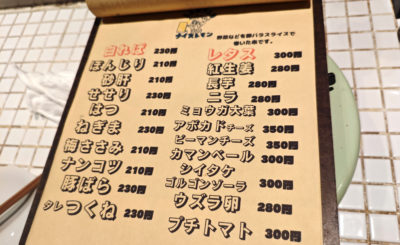 ナイスレモン
野菜などを豚バラスライスで
巻いた串です。
白れば 230円
ぼんじり 210円
砂肝 210円
せせり 230円
はつ 210円
ねぎま 230円
梅ささみ 210円
ナンコツ 210円
豚ばら 230円
タレつくね 230円
レタス 300円
紅生姜 280円
長芋 280円
ニラ 280円
ミョウガ大葉 300円
アボカドチーズ 350円
ピーマンチーズ 350円
カマンベール 300円
シイタケ
ゴルゴンゾーラ 300円
ウズラ卵 280円
プチトマト 300円